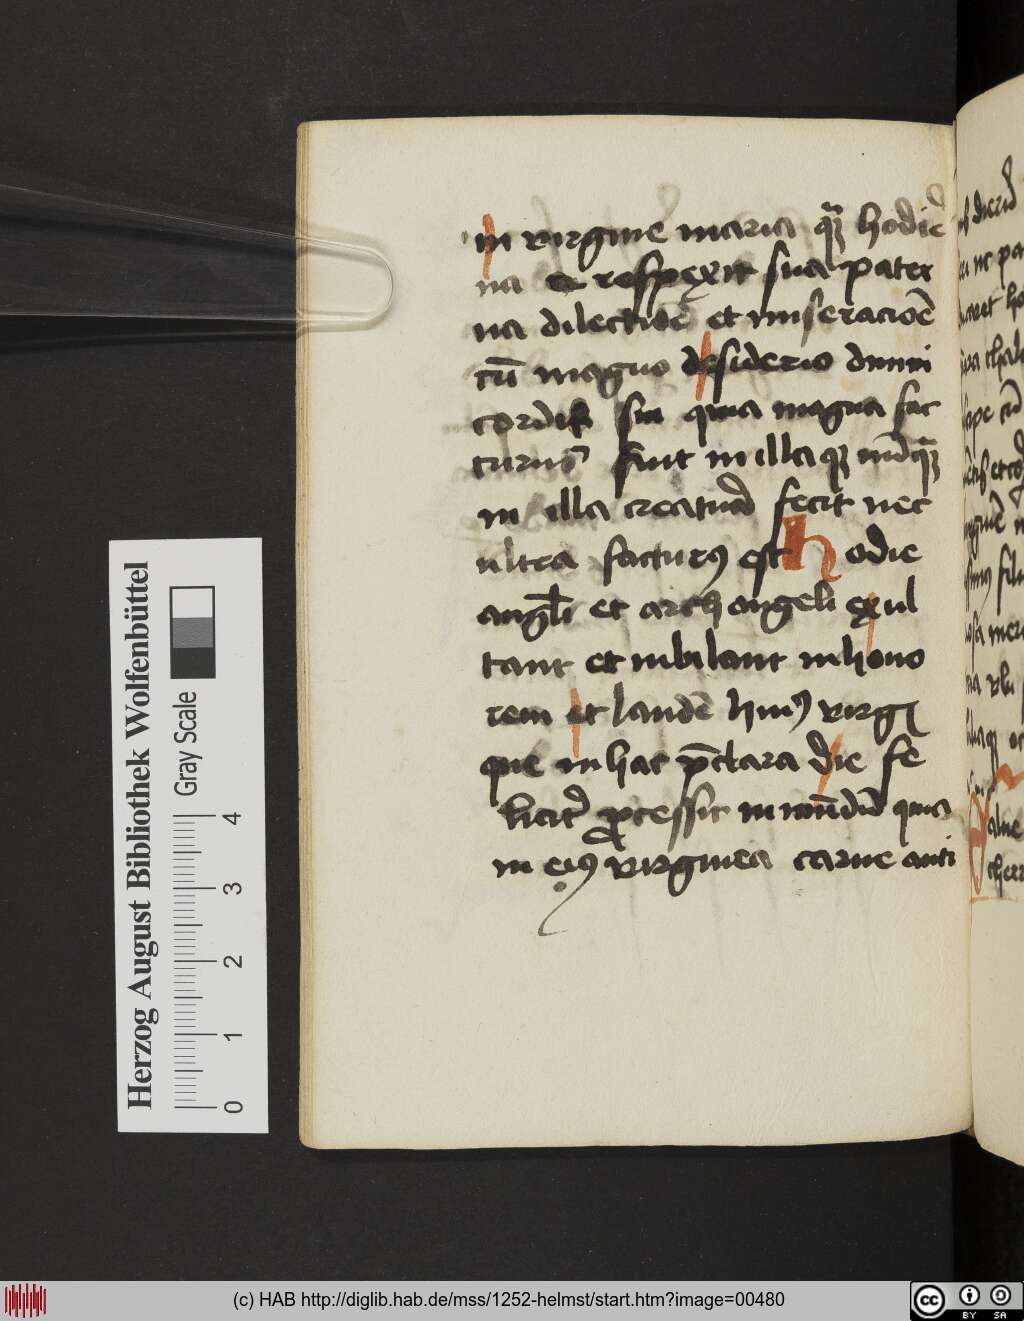 in virgine maria quā hodie
na et respexit sua pater
na dilectiōe et miseracioē
cū magno desiderio diuini
cordis sui quia magna fac
turus sūt in illa quē nūquā
in illa creatura fecit nec
ultra facturꝯ est Hodie
angl̄i et archangeli exul
tant et iubilant in hono
rem et laudē huiꝯ virgī
que in hac p̄clara die fe
liciter processit in mūdū quia
in eiꝯ virginea carne anti
Herzog August Bibliothek Wolfenbüttel
Gray Scale
0 1 2 3 4
(c) HAB http://diglib.hab.de/mss/1252-helmst/start.htm?image=00480
cc BY SA